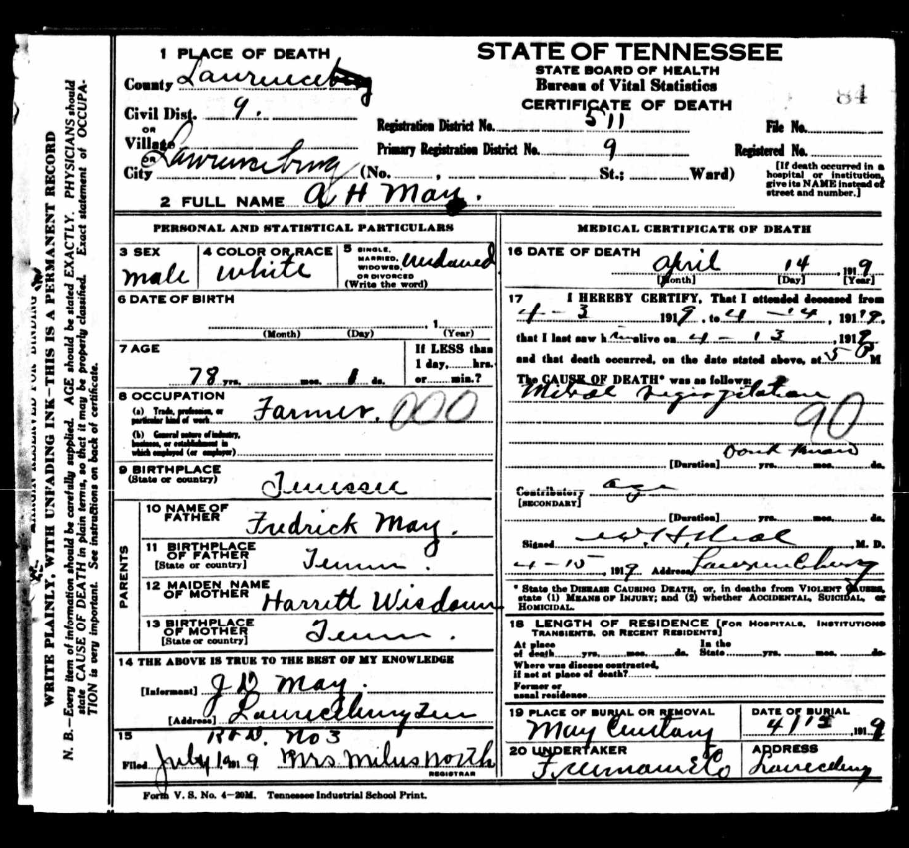 STATE OF TENNESSEE
STATE BOARD OF HEALTH
Bureau of Vital Statistics
CERTIFICATE OF DEATH
84
1 PLACE OF DEATH
County Lawrence
Civil Dist. 9.
OR
Village
OR
City Lawrenceburg (No. , St.; Ward)
Registration District No. 511
Primary Registration District No. 9
File No.
Registered No.
[If death occurred in a
hospital or institution,
give its NAME instead of
street and number.]
2 FULL NAME A H May.
PERSONAL AND STATISTICAL PARTICULARS
3 SEX
male
4 COLOR OR RACE
white
5 SINGLE,
MARRIED,
WIDOWED,
OR DIVORCED
(Write the word)
widowed
6 DATE OF BIRTH
, 1
(Month) (Day) (Year)
7 AGE
78 yrs. mos. 1 ds.
If LESS than
1 day, hrs.
or min.?
8 OCCUPATION
(a) Trade, profession, or
particular kind of work
Farmer. 000
(b) General nature of industry,
business, or establishment in
which employed (or employer)
9 BIRTHPLACE
(State or country)
Tenessee
PARENTS
10 NAME OF
FATHER
Fredrick May.
11 BIRTHPLACE
OF FATHER
[State or country]
Tenn.
12 MAIDEN NAME
OF MOTHER
Harrett Wisdown
13 BIRTHPLACE
OF MOTHER
[State or country]
Tenn.
14 THE ABOVE IS TRUE TO THE BEST OF MY KNOWLEDGE
[Informant] J D May.
[Address] Lawrenceburg Ten
R.F.D. No 3
15
Filed July 1 1919 Mrs Milus North
REGISTRAR
MEDICAL CERTIFICATE OF DEATH
16 DATE OF DEATH
April 14 1919
[Month] [Day] [Year]
17 I HEREBY CERTIFY, That I attended deceased from
4 - 3 1919, to 4 - 14, 1919,
that I last saw him alive on 4 - 13 1919
and that death occurred, on the date stated above, at 5 P M
The CAUSE OF DEATH* was as follows:
Mitral regurgitation
90
Dont know
[Duration] yrs. mos. ds.
Contributory age
[SECONDARY]
[Duration] yrs. mos. ds.
Signed W. H. , M. D.
4-15, 1919 Address Lawrenceburg
* State the DISEASE CAUSING DEATH, or, in deaths from VIOLENT CAUSES,
state (1) MEANS OF INJURY; and (2) whether ACCIDENTAL, SUICIDAL, or
HOMICIDAL.
18 LENGTH OF RESIDENCE [FOR HOSPITALS, INSTITUTIONS
TRANSIENTS, OR RECENT RESIDENTS]
At place In the
of death yrs. mos. ds. State yrs. mos. ds.
Where was disease contracted,
if not at place of death?
Former or
usual residence
19 PLACE OF BURIAL OR REMOVAL
May
DATE OF BURIAL
4/15 1919
20 UNDERTAKER
Freeman & Co
ADDRESS
Lawrenceburg
Form V. S. No. 4-20M. Tennessee Industrial School Print.
WRITE PLAINLY, WITH UNFADING INK—THIS IS A PERMANENT RECORD
N. B.—Every item of information should be carefully supplied. AGE should be stated EXACTLY. PHYSICIANS should
state CAUSE OF DEATH in plain terms, so that it may be properly classified. Exact statement of OCCUPA-
TION is very important. See instructions on back of certificate.